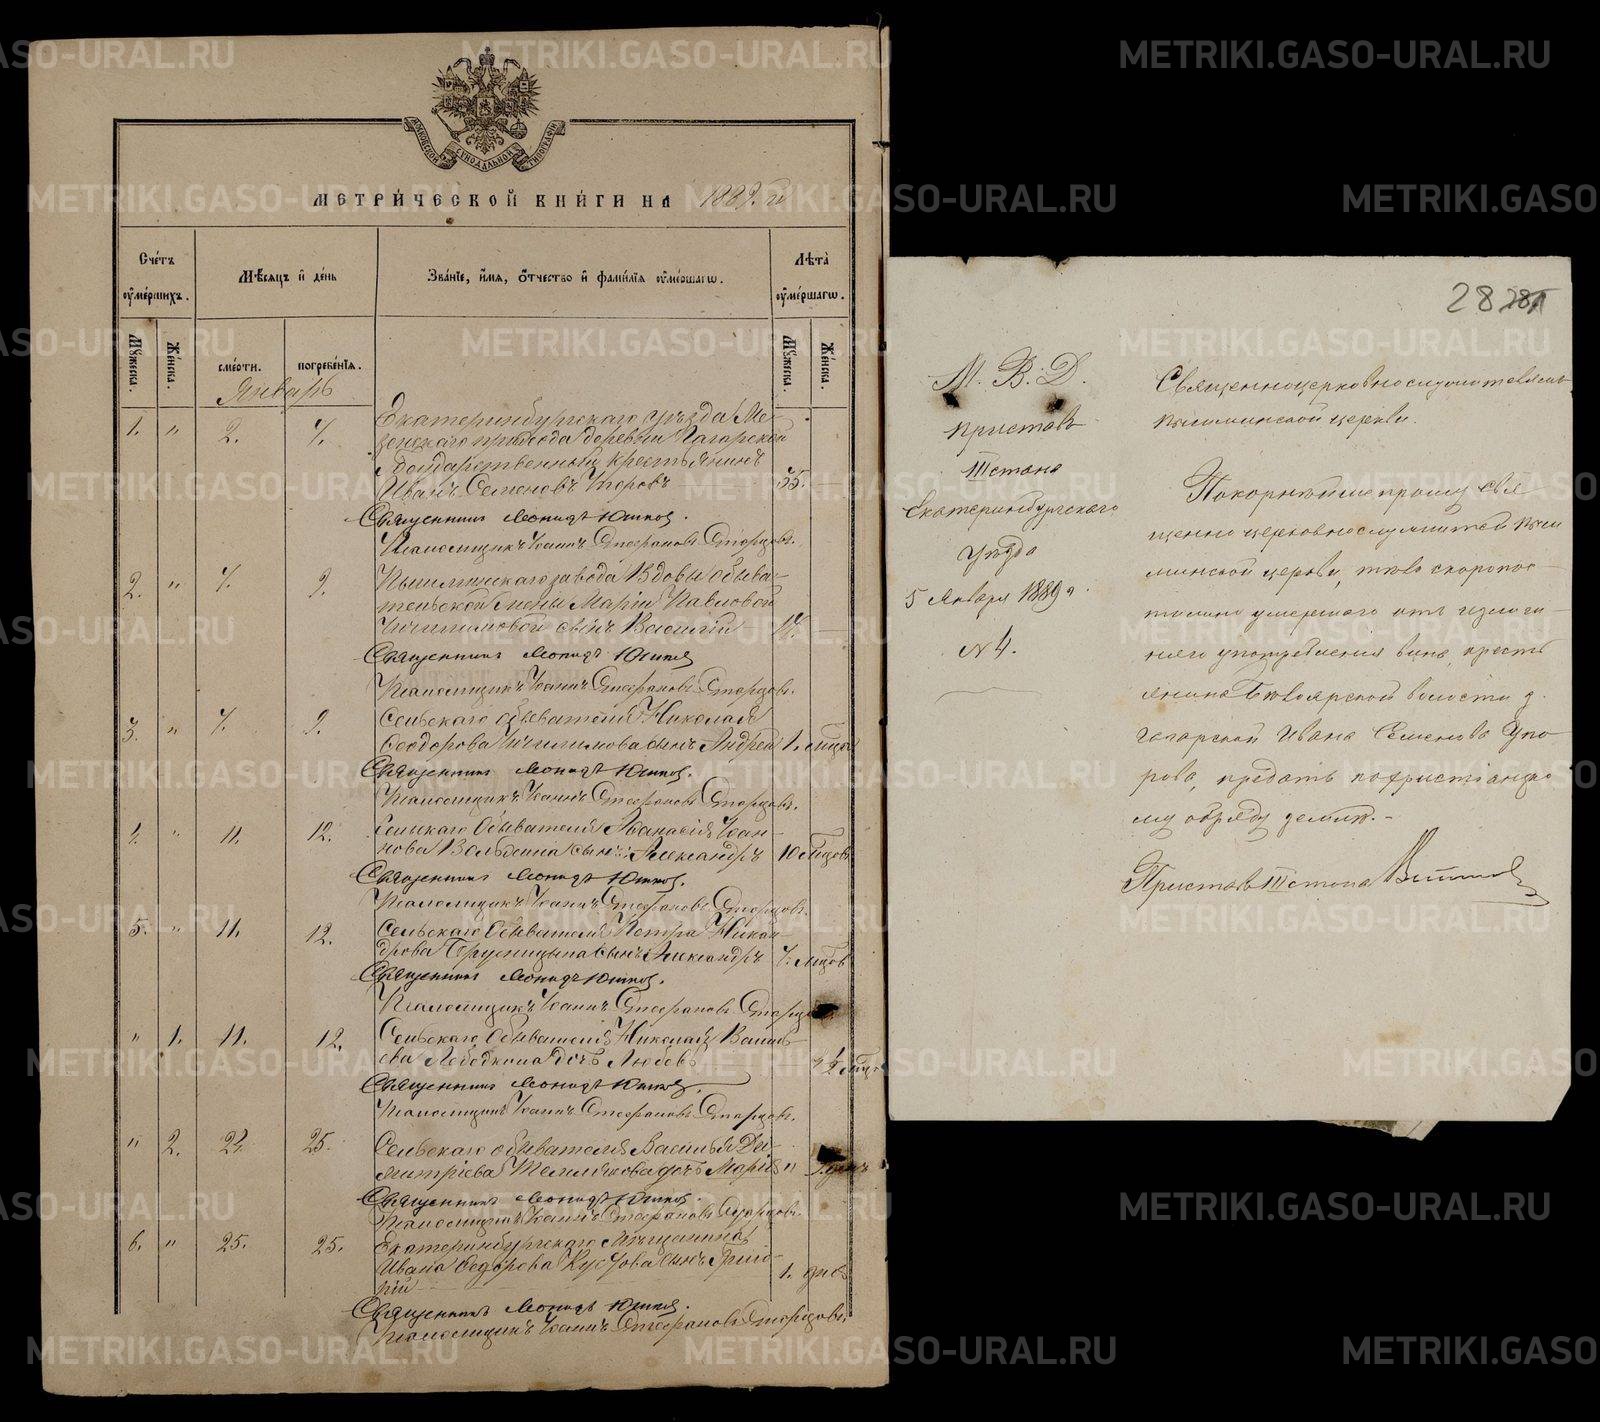 МОСКОВСКОЙ СѴНОДАЛЬНОЙ ТИПОГРАФІИ
МЕТРИ́ЧЕСКОЙ КНИ́ГИ НА 1889. г.
Сче́тъ оу҆ме́ршихъ.
Мѣ́сяцъ и҆ де́нь
Зва́нїе, и҆́мя, ѻ҆́тчество и҆ фами́лїя оу҆ме́ршагѡ.
Лѣта̀ оу҆ме́ршагѡ.
Мꙋ́жеска. Же́нска. сме́рти. погребе́нїя. Мꙋ́жеска. Же́нска.
Январь
Екатеринбургскаго уѣзда Ме-
1. " 2. 7. зенскаго прихода деревни Гагарской
Государственный крестьянинъ
Иванъ Семеновъ Упоровъ 35. —
Священникъ Леонидъ Юшков.
Псаломщикъ Іоаннъ Стефановъ Старцовъ.
2. " 7. 9. Пышминскаго завода Вдовы обыва-
тельской жены Маріи Павловой
сынъ Василій —
Священникъ Леонидъ Юшков
Псаломщикъ Іоаннъ Стефановъ Старцовъ.
3. " 7. 9. Сельскаго обывателя Николая
Ѳеодорова сынъ Андрей 1. мѣсяц
Священникъ Леонидъ Юшков.
Псаломщикъ Іоаннъ Стефановъ Старцовъ.
4. " 11. 12. Сельскаго Обывателя Аѳанасія Іоан-
нова сынъ Александръ 10 мѣсцов
Священникъ Леонидъ Юшков.
Псаломщикъ Іоаннъ Стефановъ Старцовъ.
5. " 11. 12. Сельскаго Обывателя Петра Никан-
дрова Брусницына сынъ Александръ 7. мѣсцов
Священникъ Леонидъ Юшков.
Псаломщикъ Іоаннъ Стефановъ Старцо
" 1. 11. 12. Сельскаго Обывателя Николая Василь-
ева Лебедкина дочь Любовь
Священникъ Леонидъ Юшков.
Псаломщикъ Іоаннъ Стефановъ Старцовъ.
" 2. 22. 25. Сельскаго обывателя Василья Ди-
митріева дочь Марія "
Священникъ Леонидъ Юшков.
Псаломщикъ Іоаннъ Стефановъ Старцовъ.
6. " 25. 25. Екатеринбургскаго Мѣщанина
Ивана Федорова сынъ Григо-
рій 1. дня
Священникъ Леонидъ Юшков.
Псаломщикъ Іоаннъ Стефановъ Старцовъ.
28
М. В. Д.
Приставъ
III стана
Екатеринбургскаго
уѣзда
5 Января 1889 г.
№ 4.
Священноцерковнослужителямъ
Пышминской церкви.
Покорнѣйше прошу свя-
щенно церковнослужителей Пыш
минской церкви, тѣло скоропос-
тижно умершаго отъ излиш-
няго употребленія вина, кресть
янина Бѣлоярской волости д.
Гагарской Ивана Семенова Упо-
рова, предать по христіанско
му обряду землѣ. -
Приставъ III стана
METRIKI.GASO-URAL.RU